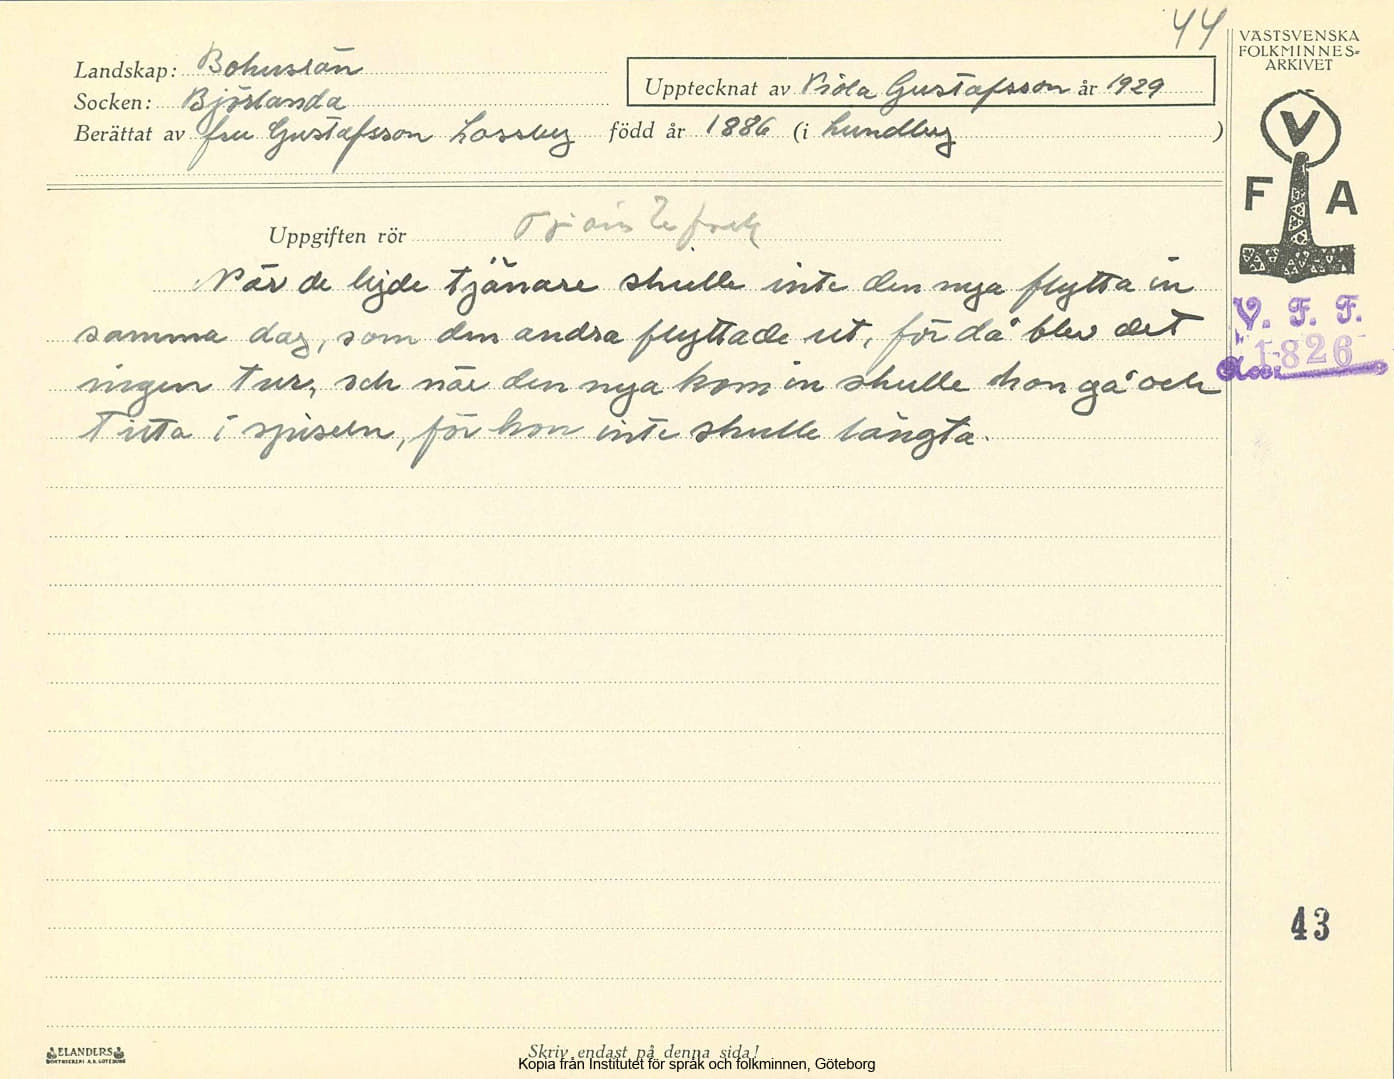 44
VÄSTSVENSKA
FOLKMINNES-
ARKIVET
Landskap: Bohuslän
Socken: Björlanda
Upptecknat av Viola Gustafsson år 1929
Berättat av fru Gustafsson Lossby född år 1886 (i Lundby )
V
F A
Uppgiften rör Tjänstefolk
När de lejde tjänare skulle inte den nya flytta in
samma dag, som den andra flyttade ut, för då blev det
ingen tur, och när den nya kom in skulle hon gå och
titta i spiseln, för hon inte skulle längta.
V. F. F.
1826
Acc.
43
ELANDERS
BOKTRYCKERI A.B. GÖTEBORG
Skriv endast på denna sida!
Kopia från Institutet för språk och folkminnen, Göteborg